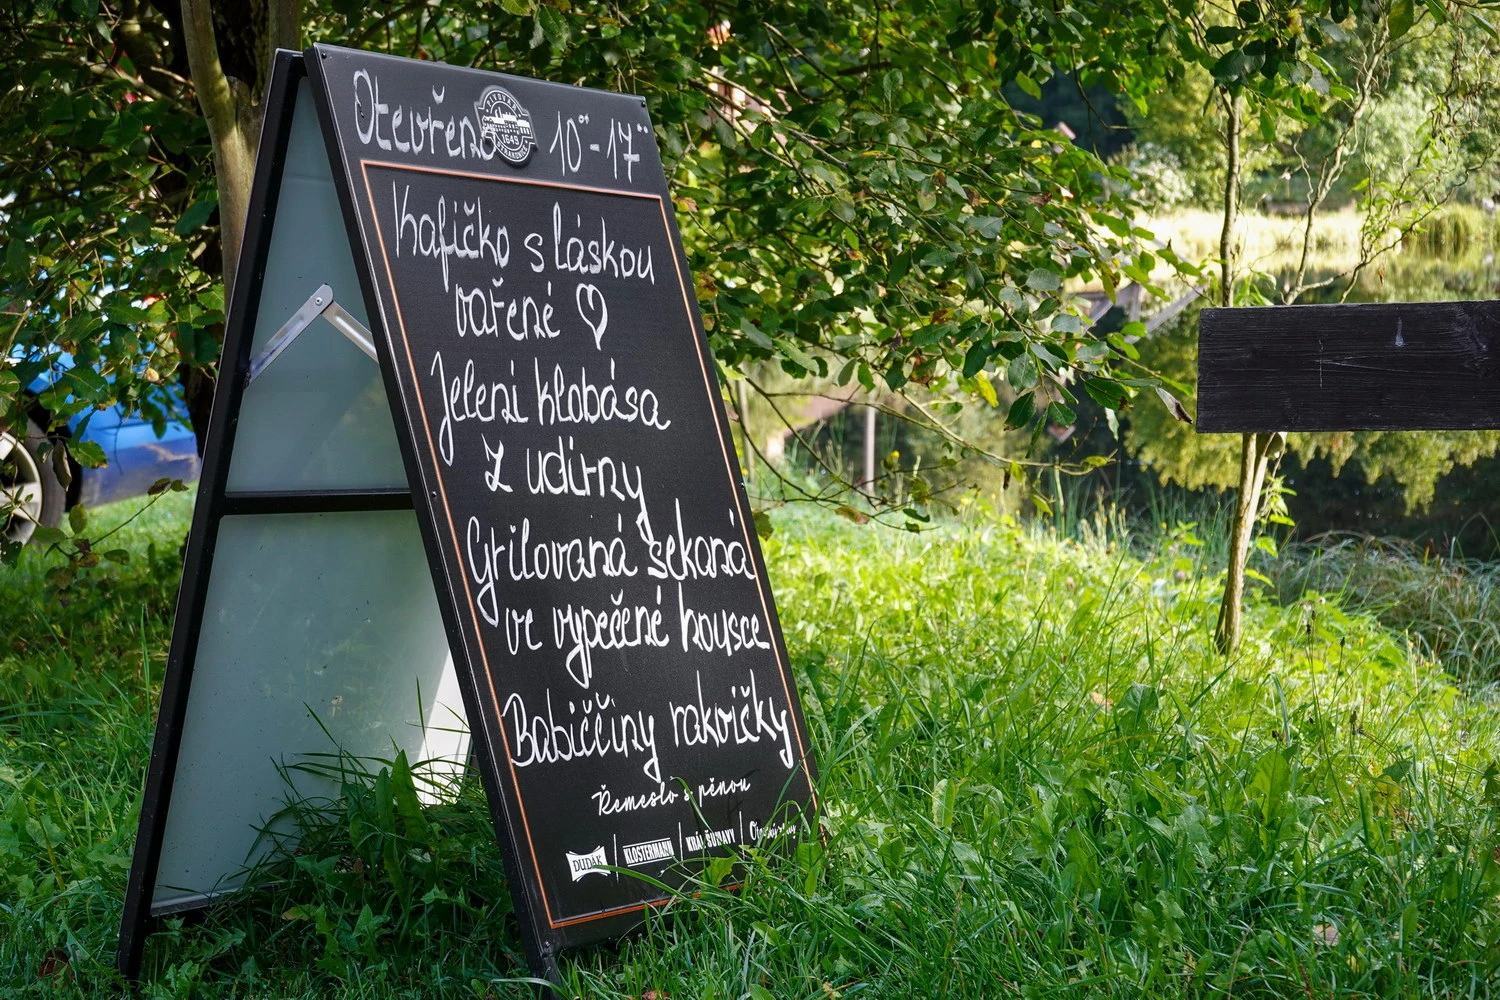 Otevřeno 10°°-17°°
PIVOVAR
1649
STRAKONICE
Kafíčko s láskou
vařené ♡
Jelení klobása
z udírny
Grilovaná sekaná
ve vypečené housce
Babiččiny rakvičky
Řemeslo s pěnou
DUDÁK | KLOSTERMANN | KRÁL ŠUMAVY |